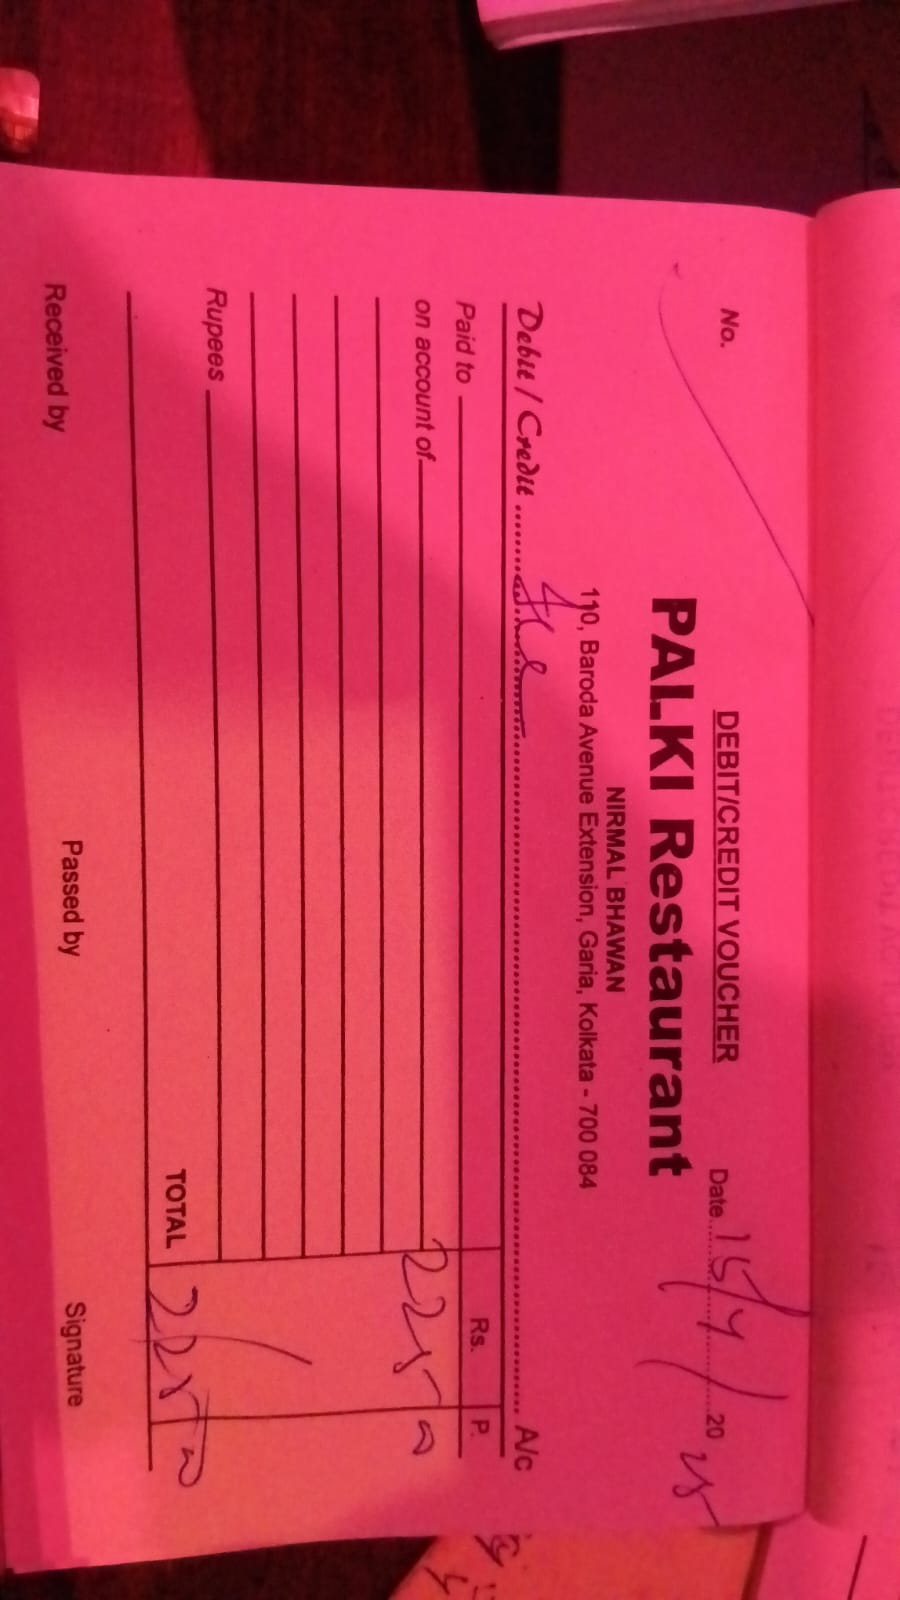 DEBIT/CREDIT VOUCHER
No.
Date 15/4/2025
PALKI Restaurant
NIRMAL BHAWAN
110, Baroda Avenue Extension, Garia, Kolkata - 700 084
Debit / Credit A/c
Paid to Rs. P.
on account of 225 0
Rupees
TOTAL 225 0
Received by Passed by Signature